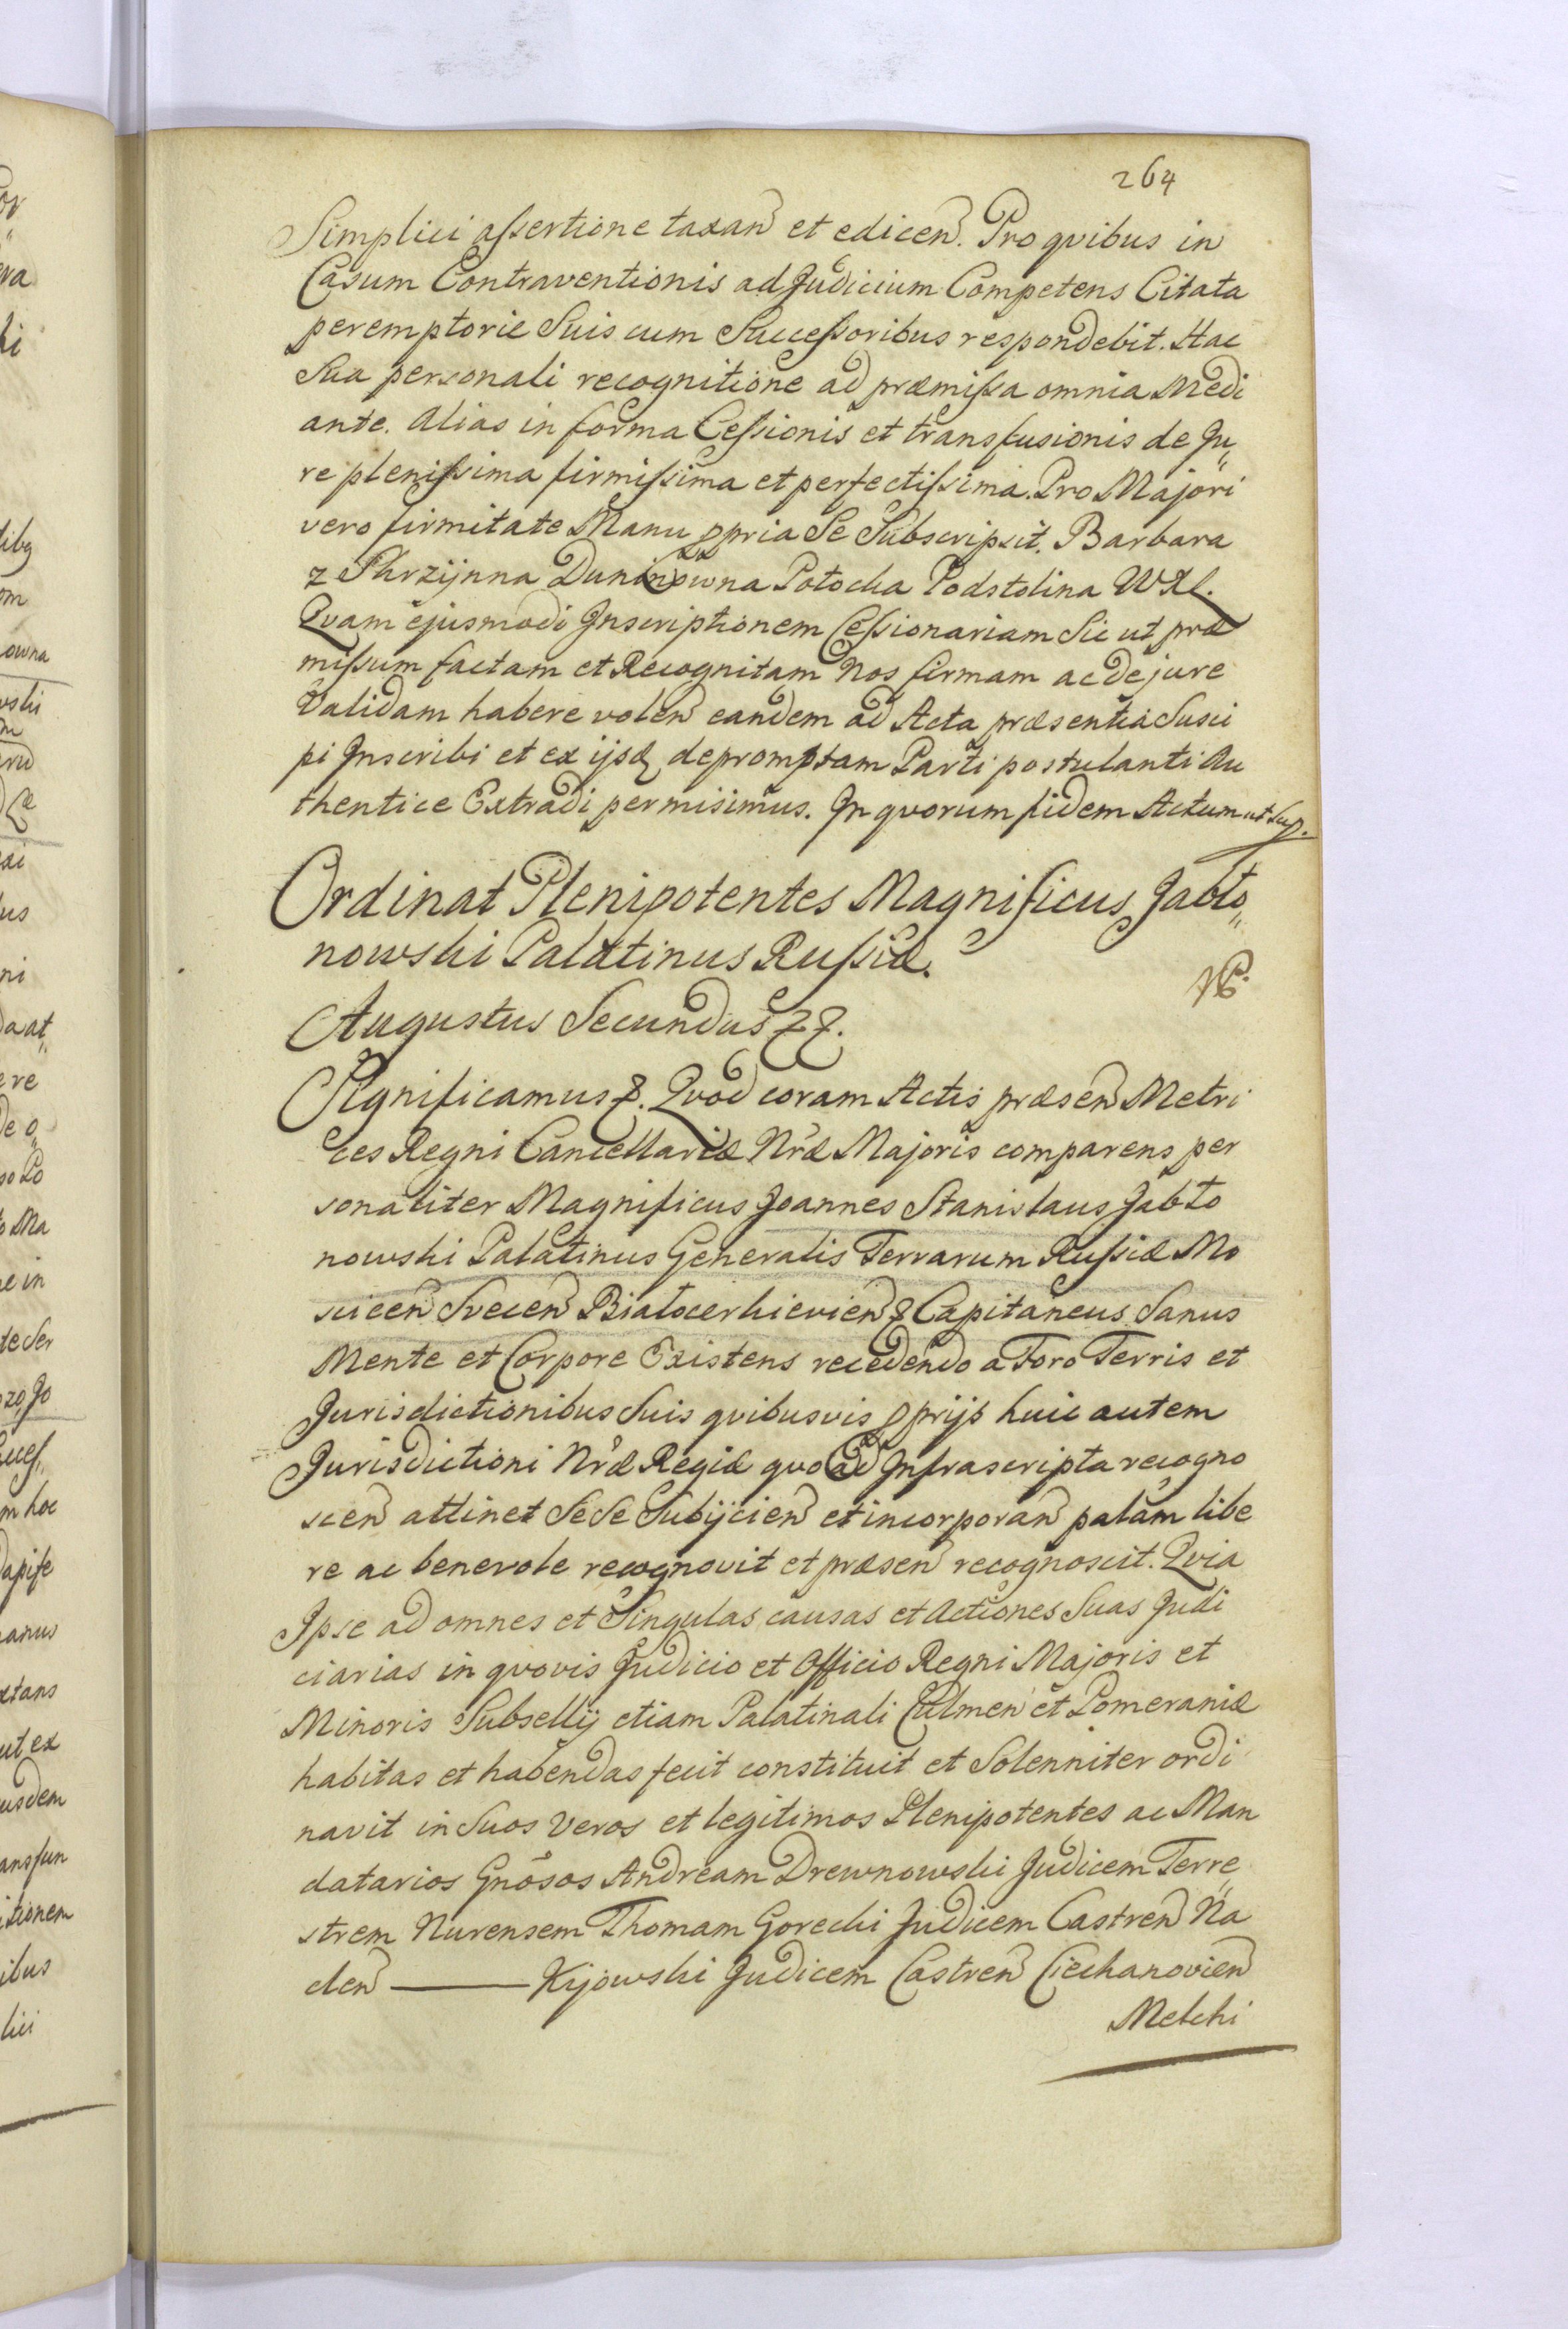 264
Simplici assertione taxan et edicen. Pro qvibus in
Casum Contraventionis ad Judicium Competens Citata
peremptorie Suis cum Successoribus respondebit. Hac
Sua personali recognitione ad præmissa omnia Medi
ante. Alias in forma Cessionis et transfusionis de Ju„
re plenissima firmissima et perfectissima. Pro Majori
vero firmitate Manu ppria Se Subscripsit. Barbara
z Skrzynna Duninowna Potocka Podstolina WXL.
Qvam ejusmodi Inscriptionem Cessionariam Sic ut præ
missum factam et Recognitam Nos firmam ac de jure
Validam habere volen eandem ad Acta præsentia Susci
pi Inscribi et ex ijsdq depromptam Parti postulanti Au
thentice Extradi permisimus. In qvorum fidem Actum ut Sup.
Ordinat Plenipotentes Magnificus Jabło„
nowski Palatinus Russiæ.
Augustus Secundus
Significamus. Qvod coram Actis præsen Metri
ces Regni Cancellariæ Nræ Majoris comparens per
sonaliter Magnificus Joannes Stanislaus Jabło
nowski Palatinus Generalis Terrarum Russiæ Mo
scicen Svecen Białocerkievien Capitaneus Sanus
Mente et Corpore Existens recedendo a Foro Terris et
Jurisdictionibus Suis qvibusvis pprijs huic autem
Jurisdictioni Nræ Regiæ qvo ad Infrascripta recogno
scen attinet Se Se Subijcien et incorporan palam libe
re ac benevole recognovit et præsen recognoscit. Qvia
Ipse ad omnes et Singulas causas et Actiones Suas Judi
ciarias in qvovis Judicio et Officio Regni Majoris et
Minoris Subsellij etiam Palatinali Culmen et Pomeraniæ
habitas et habendas fecit constituit et Solenniter ordi
navit in Suos Veros et legitimos Plenipotentes ac Man
datarios Gnosos Andream Drewnowski Judicem Terre„
strem Nurensem Thomam Gorecki Judicem Castren Na
clen ——— Kijowski Judicem Castren Ciechanovien
Melchi